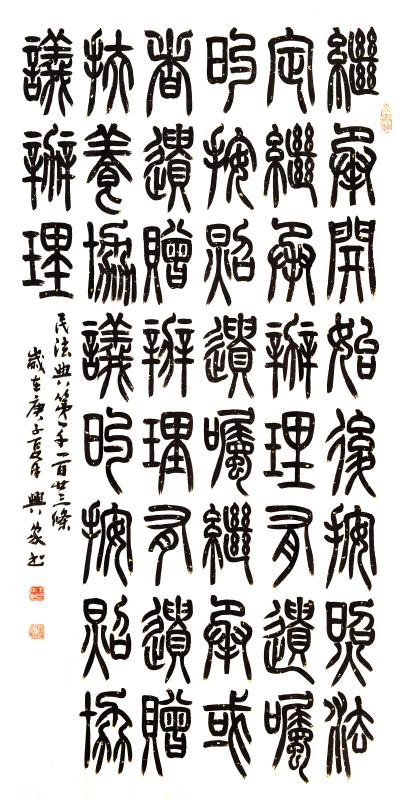 繼承開始後按照法
定繼承辦理有遺囑
的按照遺囑繼承或
者遺贈辦理有遺贈
扶養協議的按照協
議辦理
民法典第一千一百廿三條
歲在庚子夏月興家書